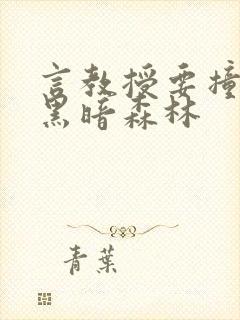 言教授要撞
黑暗森林
青葉